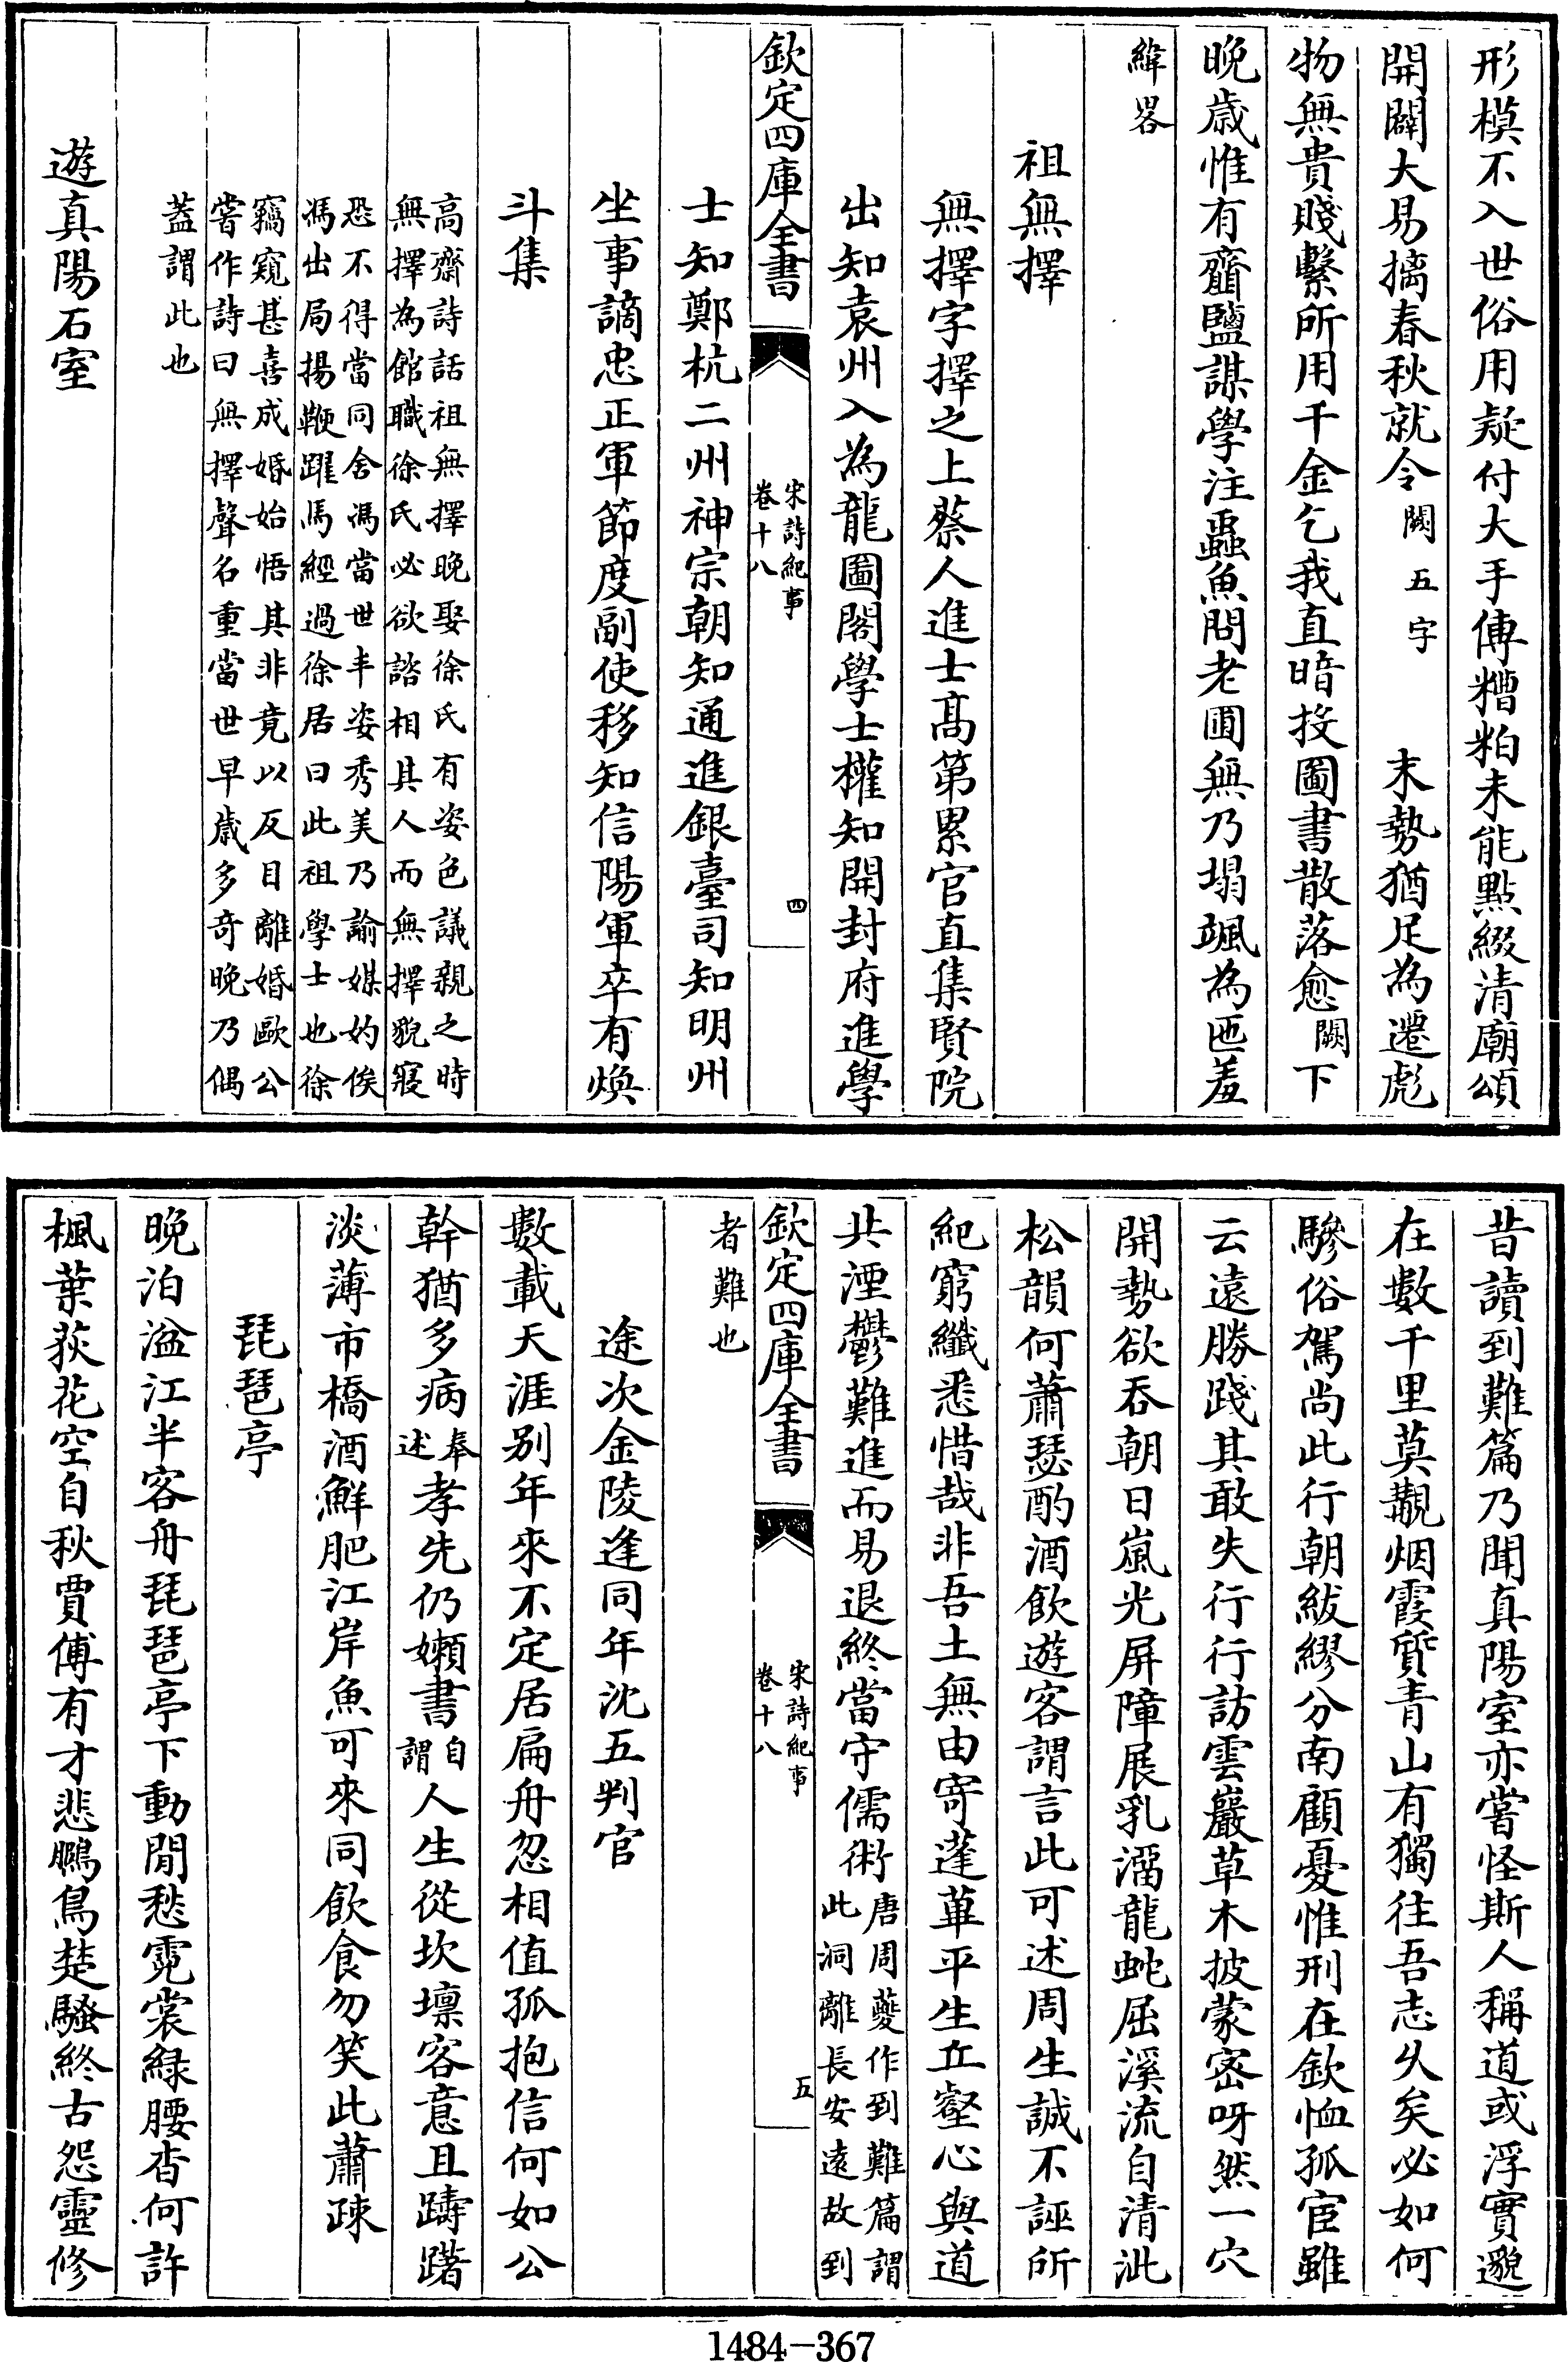 形模不入世俗用疑付大手傅糟粕未能點綴清廟頌
開闢大易摛春秋就令闕五字末勢猶足為遷彪
物無貴賤繫所用千金乞我直暗投圖書散落愈闕下
晚歲惟有虀鹽謀學注蟲魚問老圃無乃塌颯為匜羞
緯畧
祖無擇
無擇字擇之上蔡人進士髙第累官直集賢院
出知袁州入為龍圖閣學士權知開封府進學
欽定四庫全書
宋詩紀事
卷十八
四
士知鄭杭二州神宗朝知通進銀臺司知明州
坐事謫忠正軍節度副使移知信陽軍卒有煥
斗集
高齋詩話祖無擇晚娶徐氏有姿色議親之時
無擇為館職徐氏必欲諮相其人而無擇貌寢
恐不得當同舍馮當世丰姿秀美乃諭媒妁俟
馮出局揚鞭躍馬經過徐居曰此祖學士也徐
竊窺甚喜成婚始悟其非竟以反目離婚歐公
嘗作詩曰無擇聲名重當世早歲多奇晚乃偶
蓋謂此也
遊真陽石室
昔讀到難篇乃聞真陽室亦嘗怪斯人稱道或浮實邈
在數千里莫覩烟霞質青山有獨往吾志久矣必如何
驂俗駕尚此行朝紱繆分南顧憂惟刑在欽恤孤宦雖
云遠勝踐其敢失行行訪雲巖草木披蒙密呀然一穴
開勢欲吞朝日嵐光屏障展乳溜龍虵屈溪流自清泚
松韻何蕭瑟酌酒飲遊客謂言此可述周生誠不誣所
紀窮纖悉惜哉非吾土無由寄蓬蓽平生丘壑心與道
共湮鬱難進而易退終當守儒術唐周夔作到難篇謂
此洞離長安遠故到
欽定四庫全書
宋詩紀事
卷十八
五
者難也
途次金陵逢同年沈五判官
數載天涯别年來不定居扁舟忽相值孤抱信何如公
幹猶多病奉述孝先仍嬾書自謂人生從坎壈客意且躊躇
淡薄市橋酒鮮肥江岸魚可來同飲食勿笑此蕭疎
琵琶亭
晚泊湓江半客舟琵琶亭下動閒愁霓裳緑腰杳何許
楓葉荻花空自秋賈傅有才悲鵩鳥楚騷終古怨靈修
1484-367